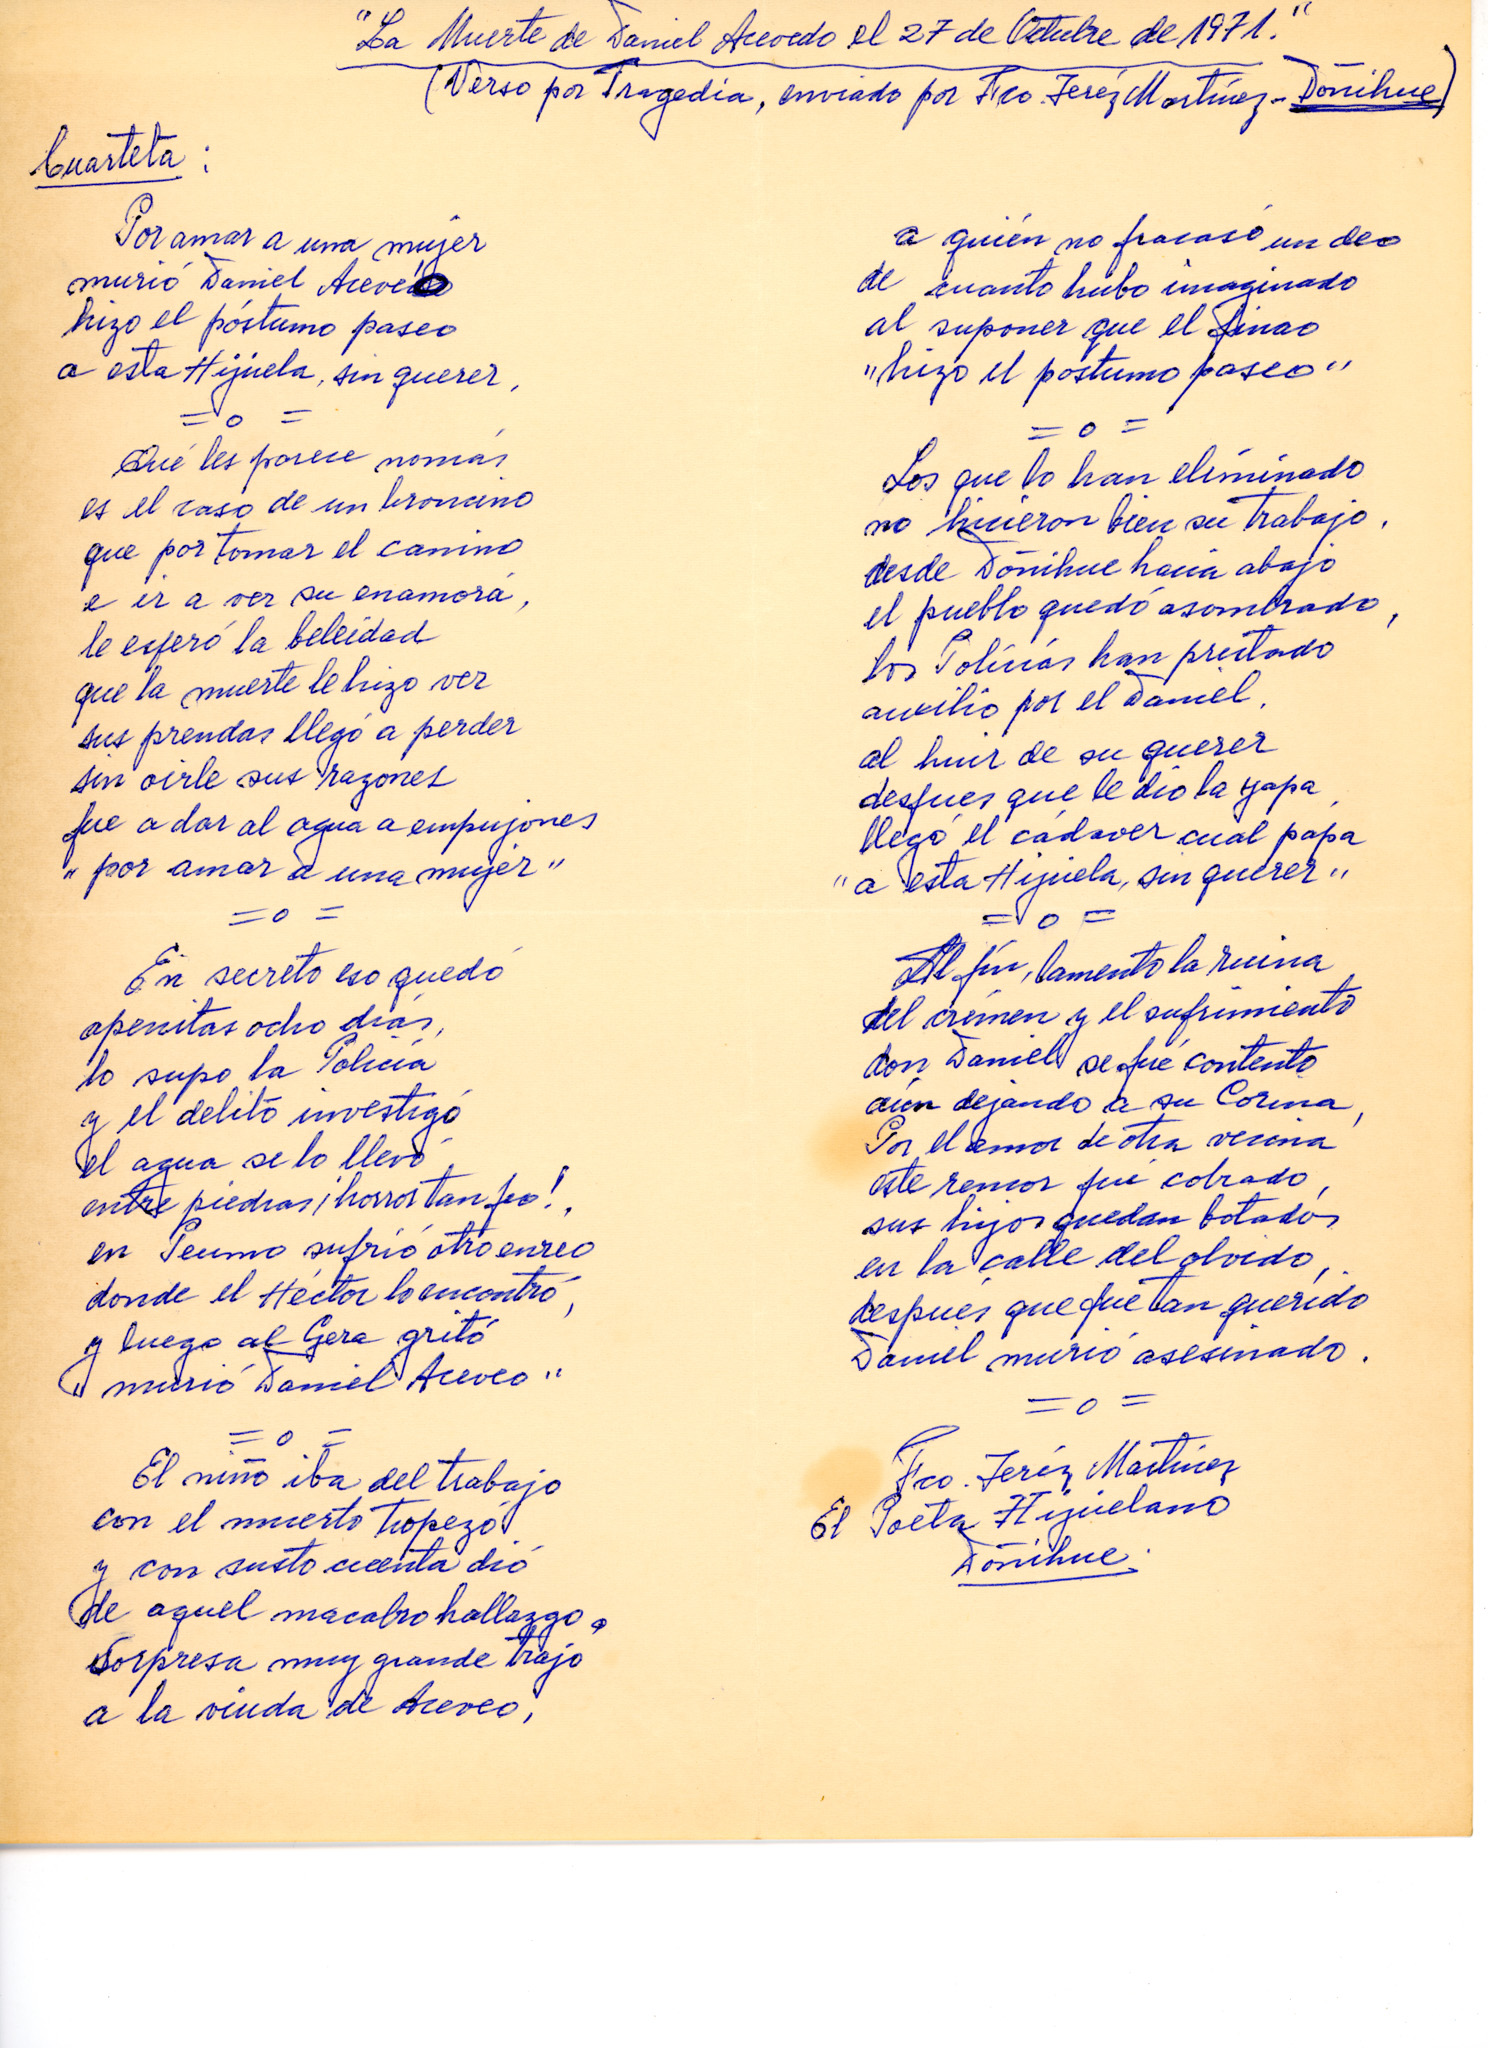 "La Muerte de Daniel Acevedo el 27 de Octubre de 1971."
(Verso por Tragedia, enviado por Fco. Jeréz Martínez - Doñihue)
Cuarteta :
Por amar a una mujer
murió Daniel Aceveo
hizo el póstumo paseo
a esta Hijuela, sin querer,
= o =
Qué les parece nomás
es el caso de un broncino
que por tomar el camino
e ir a ver su enamorá,
le esperó la beleidad
que la muerte le hizo ver
sus prendas llegó a perder
sin oirle sus razones
fue a dar al agua a empujones
"por amar a una mujer"
= o =
En secreto eso quedó
apenitas ocho días,
lo supo la Policía
y el delito investigó
el agua se lo llevó
entre piedras ¡horror tan feo!,
en Peumo sufrió otro enreo
donde el Héctor lo encontró,
y luego al Gera gritó
"murió Daniel Aceveo"
= o =
El niño iba del trabajo
con el muerto tropezó
y con susto cuenta dió
de aquel macabro hallazgo.
Sorpresa muy grande trajo
a la viuda de Aceveo,
a quién no fracasó un deo
de cuanto hubo imaginado
al suponer que el finao
"hizo el postumo paseo"
= o =
Los que lo han eliminado
no hicieron bien su trabajo,
desde Doñihue hacia abajo
el pueblo quedó asombrado,
los Policías han prestado
auxilio por el Daniel,
al huir de su querer
despues que le dio la yapa,
llegó el cádaver cual papa
"a esta Hijuela, sin querer"
= o =
Al fín, lamento la ruina
del crímen y el sufrimiento
don Daniel se fué contento
aún dejando a su Corina,
Por el amor de otra vecina
este rencor fué cobrado,
sus hijos quedan botados
en la calle del olvido,
después que fue tan querido
Daniel murió asesinado.
= o =
Fco. Jeréz Martínez
El Poeta Hijuelano
Doñihue.